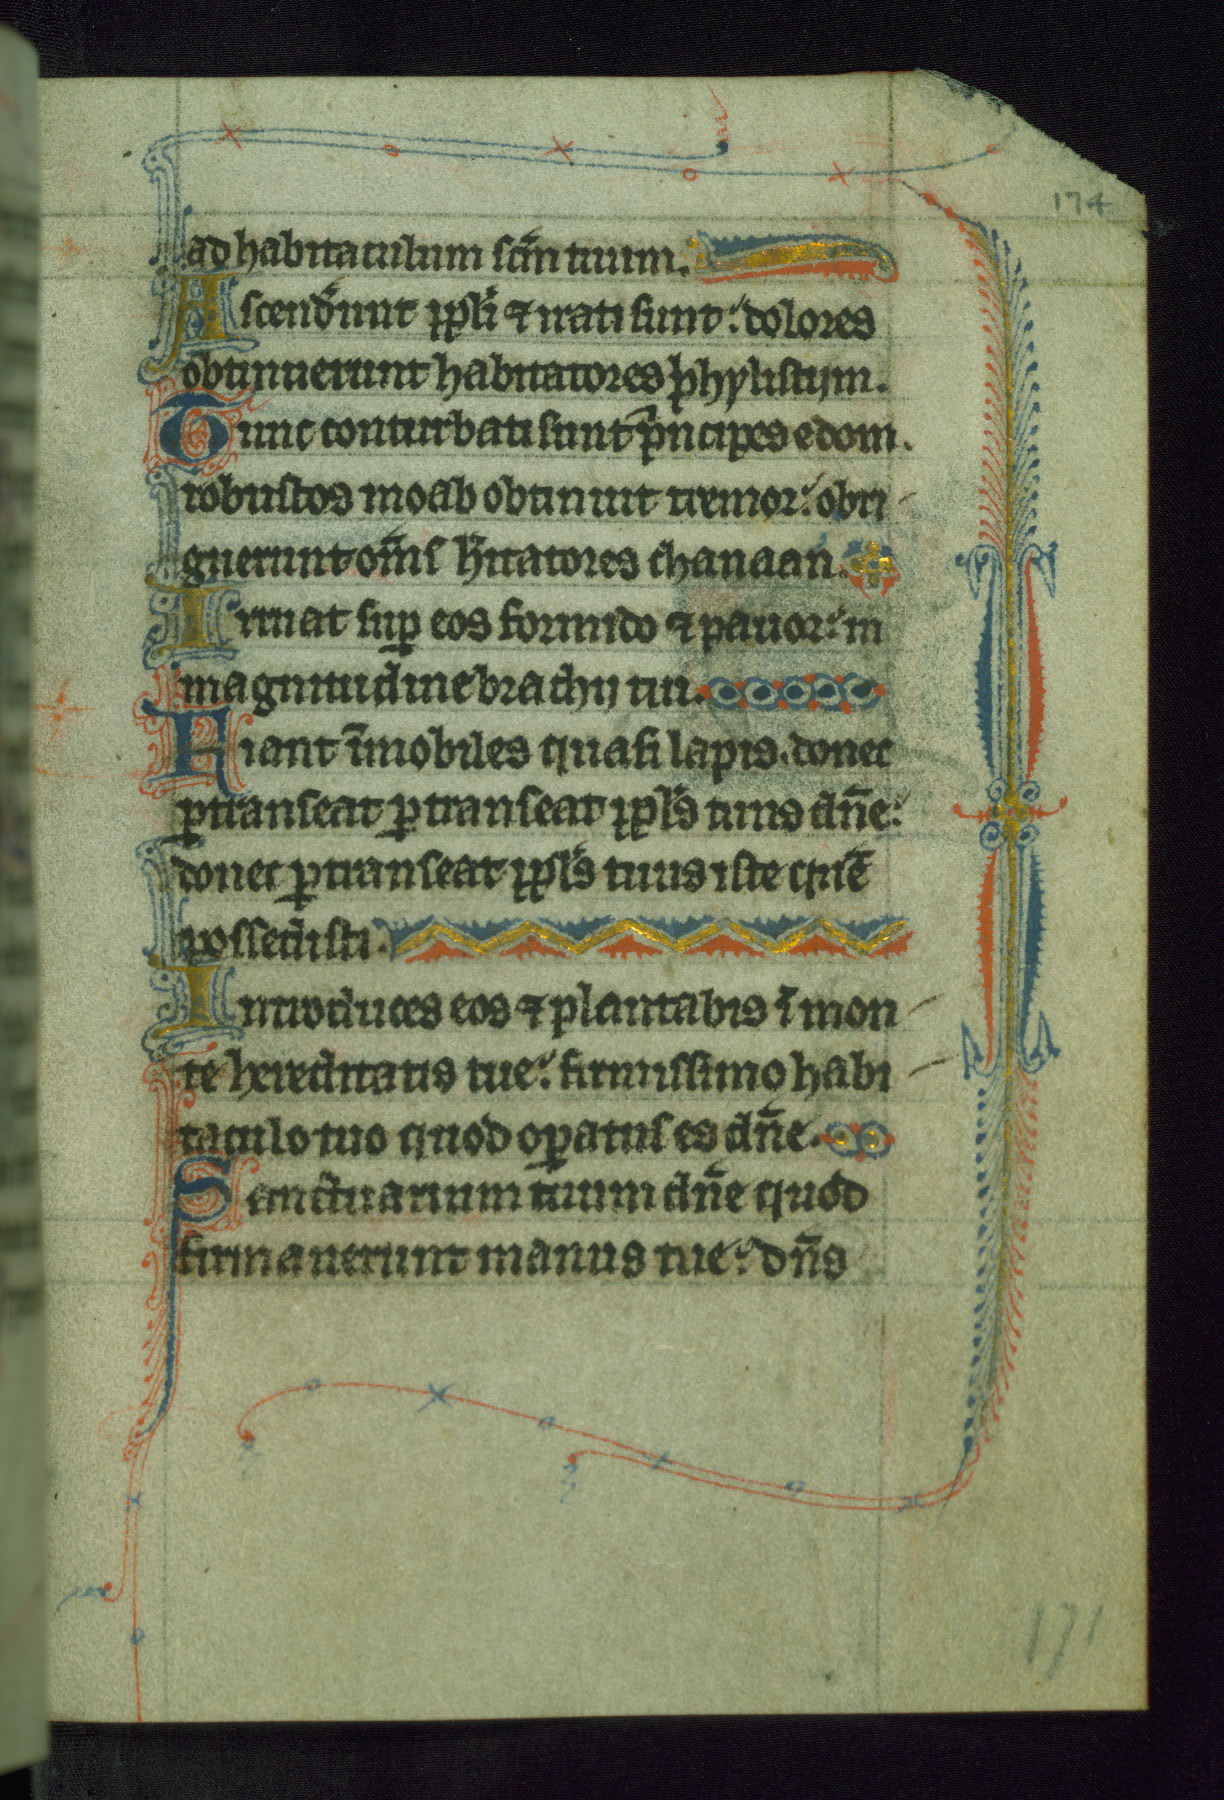 174
ad habitaculum scm̄ tuum.
Ascend̾unt pp̱li ⁊ irati sunt: dolores
obtinuerunt habitatores phylistijm.
Tunc conturbati sunt p̄ncipes edom.
robustos moab obtinuit tremor: obri
guerunt om̄s h̄itatores chanaan.
Irruat suꝑ eos formido ⁊ pauor: in
magnitudine brachij tui.
Fiant īmobiles quasi lapis. donec
ꝑtranseat ꝑtranseat pp̱ls tuus dn̄e:
donec ꝑtranseat pp̱ls tuus iste quē
possedisti.
Introduces eos ⁊ plantabis ī mon
te hereditatis tue: firmissimo habi
taculo tuo quod oꝑatus es dn̄e.
Sanctuarium tuum dn̄e quod
firmauerunt manus tue: dn̄s
171